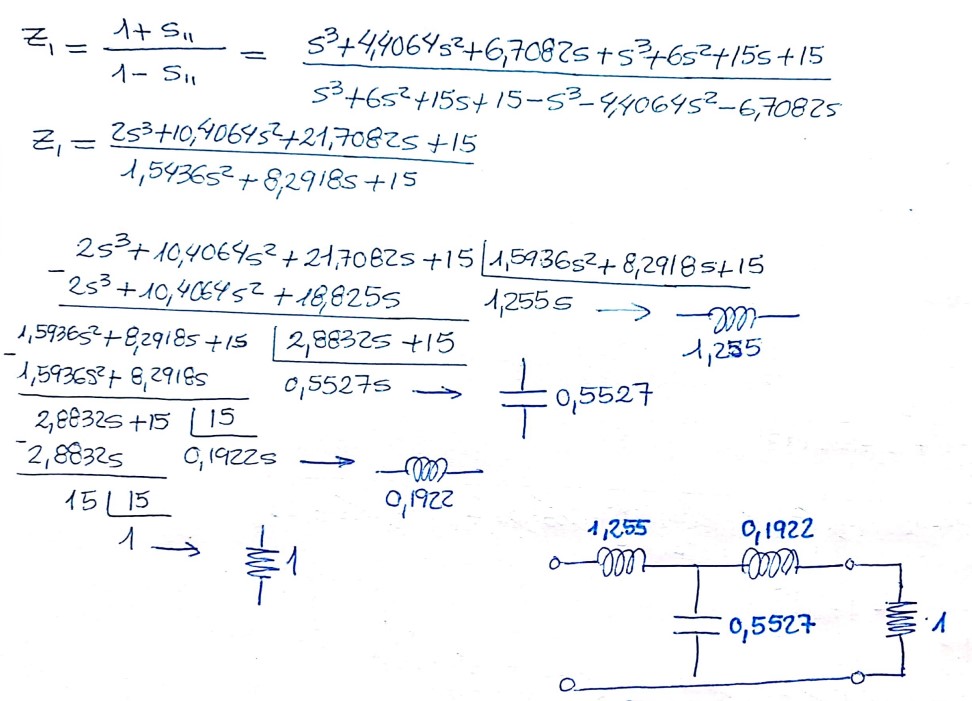 Z₁ = (1 + S₁₁)/(1 - S₁₁) = (s³+4,4064s²+6,7082s+s³+6s²+15s+15)/(s³+6s²+15s+15-s³-4,4064s²-6,7082s)
Z₁ = (2s³+10,4064s²+21,7082s+15)/(1,5436s²+8,2918s+15)
2s³+10,4064s²+21,7082s+15 | 1,5936s²+8,2918s+15
- 2s³+10,4064s²+18,825s 1,255s → 1,255
1,5936s²+8,2918s+15 | 2,8832s+15
- 1,5936s²+8,2918s 0,5527s → 0,5527
2,8832s+15 | 15
- 2,8832s 0,1922s → 0,1922
15 | 15
1 → 1
1,255 0,1922
0,5527 1